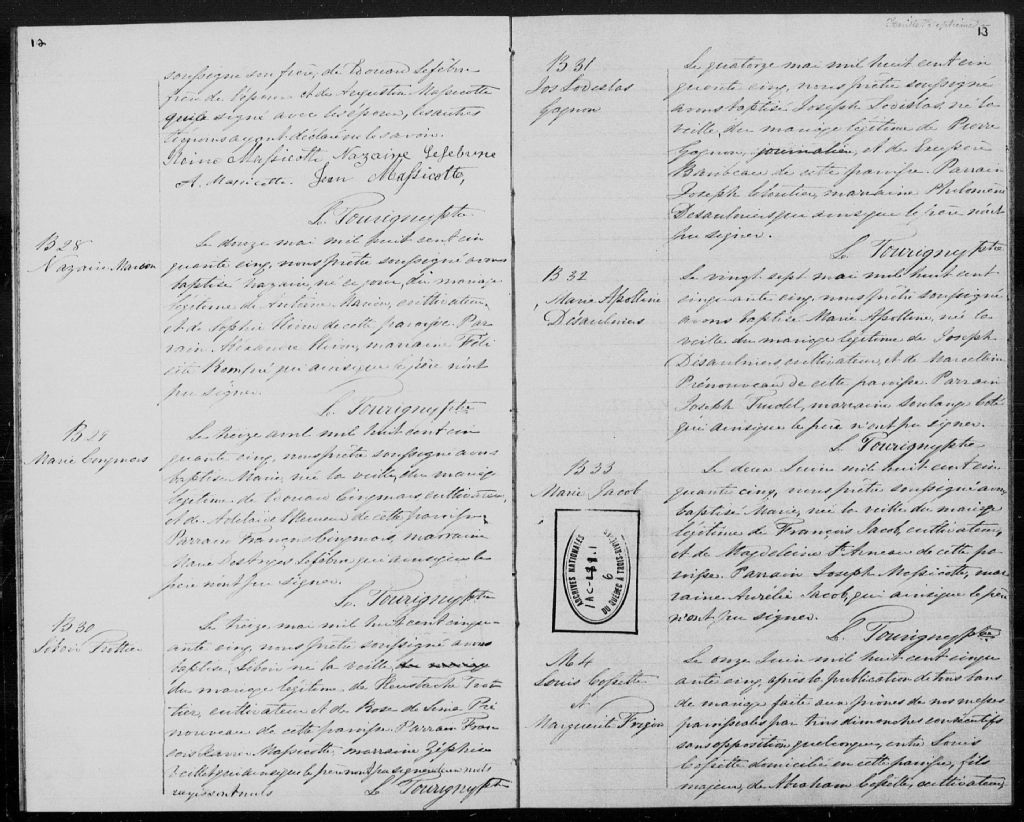 12
soussigné son frère, de Edouard Lefebre
frère de l'épous et de Augustin Massicotte
qui a signé avec les époux, les autres
témoins ayant déclaré ne le savoir.
Reine Massicotte Nazaire Lefebvre
A. Massicotte. Jean Massicotte,
L. Tourigny ptre
B 28
Nazaire
Le douze mai mil huit cent cin
quante cinq, nous prêtre soussigné avons
baptisé Nazaire, né ce jour, du mariage
légitime de Antoine, cultivateur,
et de Sophie de cette paroisse. Par
rain, marraine Féli
cité qui ainsi que le père n'ont
pu signer.
L. Tourigny ptre
B 29
Marie Cinqmars
Le treize avril mil huit cent cin
quante cinq, nous prêtre soussigné avons
baptisé Marie, née la veille, du mariage
légitime de Edouard Cinqmars cultivateur,
et de Adelaïde de cette paroisse.
Parrain François Cinqmars, marraine
Marie Des Anges Lefebvre qui ainsi que le
père n'ont pu signer.
L. Tourigny ptre
B 30
Le treize mai mil huit cent cinqu
ante cinq, nous prêtre soussigné avons
baptisé, né la veille, du mariage
du mariage légitime de Eustache Trot
tier, cultivateur et de Rose de Lima Pré
nouveau de cette paroisse Parrain Fran
çois Massicotte, marraine Zéphire
Veillet qui ainsi que le père n'ont pu signer deux mots
rayés sont nuls
L. Tourigny ptre
13
B 31
Jos Lodislas
Gagnon
Le quatorze mai mil huit cent cin
quante cinq, nous prêtre soussigné
avons baptisé Joseph Lodislas, né la
veille du mariage légitime de Pierre
Gagnon, journalier, et de
Baribeau de cette paroisse. Parrain
Joseph, marraine Philomène
Désaulniers qui ainsi que le père n'ont
pu signer.
L. Tourigny ptre
B 32
Marie Apolline
Désaulniers
Le vingt sept mai mil huit cent
cinquante cinq, nous prêtre soussigné
avons baptisé Marie Apolline, née la
veille du mariage légitime de Joseph
Désaulniers cultivateur, et de Marcelline
Prénouveau de cette paroisse Parrain
Joseph Trudel, marraine Solange Coté
qui ainsi que le père n'ont pu signer.
L. Tourigny ptre
B 33
Marie Jacob
Le deux Juin mil huit cent cin
quante cinq, nous prêtre soussigné avons
baptisé Marie, née la veille du mariage
légitime de François Jacob, cultivateur,
et de Magdeleine de cette pa
roisse. Parrain Joseph Massicotte, mar
raine Aurélie Jacob, qui ainsi que le père
n'ont pu signer.
L. Tourigny ptre
ARCHIVES NATIONALES
DU QUÉBEC À TROIS-RIVIÈRES
6
M 4
Louis Cossette
et
Marguerite Frigon
Le onze Juin mil huit cent cinqu
ante cinq, après la publication de trois bans
de mariage faite aux prônes de nos messes
paroissiales par trois dimanches consécutifs
sans opposition quelconque, entre Louis
Cossette domicilié en cette paroisse, fils
majeur, de Abraham Cossette, cultivateur,